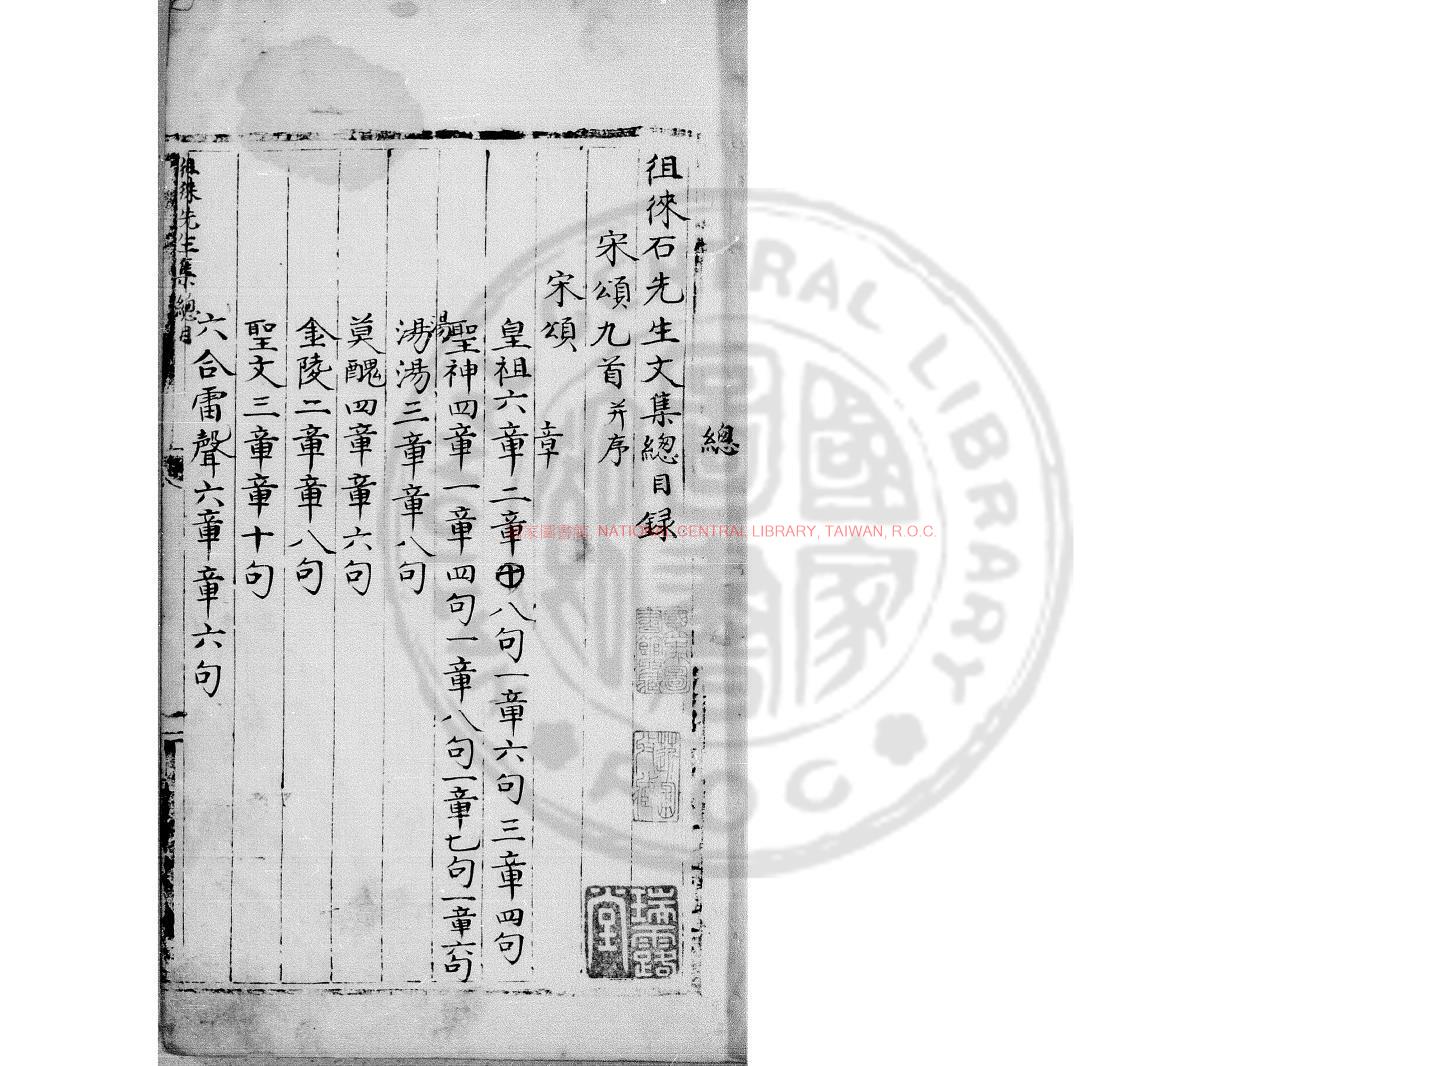 總
徂徠石先生文集總目録
宋頌九首并序
宋頌
章
皇祖六章二章十八句一章六句三章四句
聖神四章一章四句一章八句一章七句一章六句
湯
湯湯三章章八句
莫醜四章章六句
金陵二章章八句
聖文三章章十句
六合雷聲六章章六句
徂徠先生集總目
瑞露堂
國家圖書館, NATIONAL CENTRAL LIBRARY, TAIWAN, R.O.C.
CENTRAL LIBRARY
R O C
國家圖書館